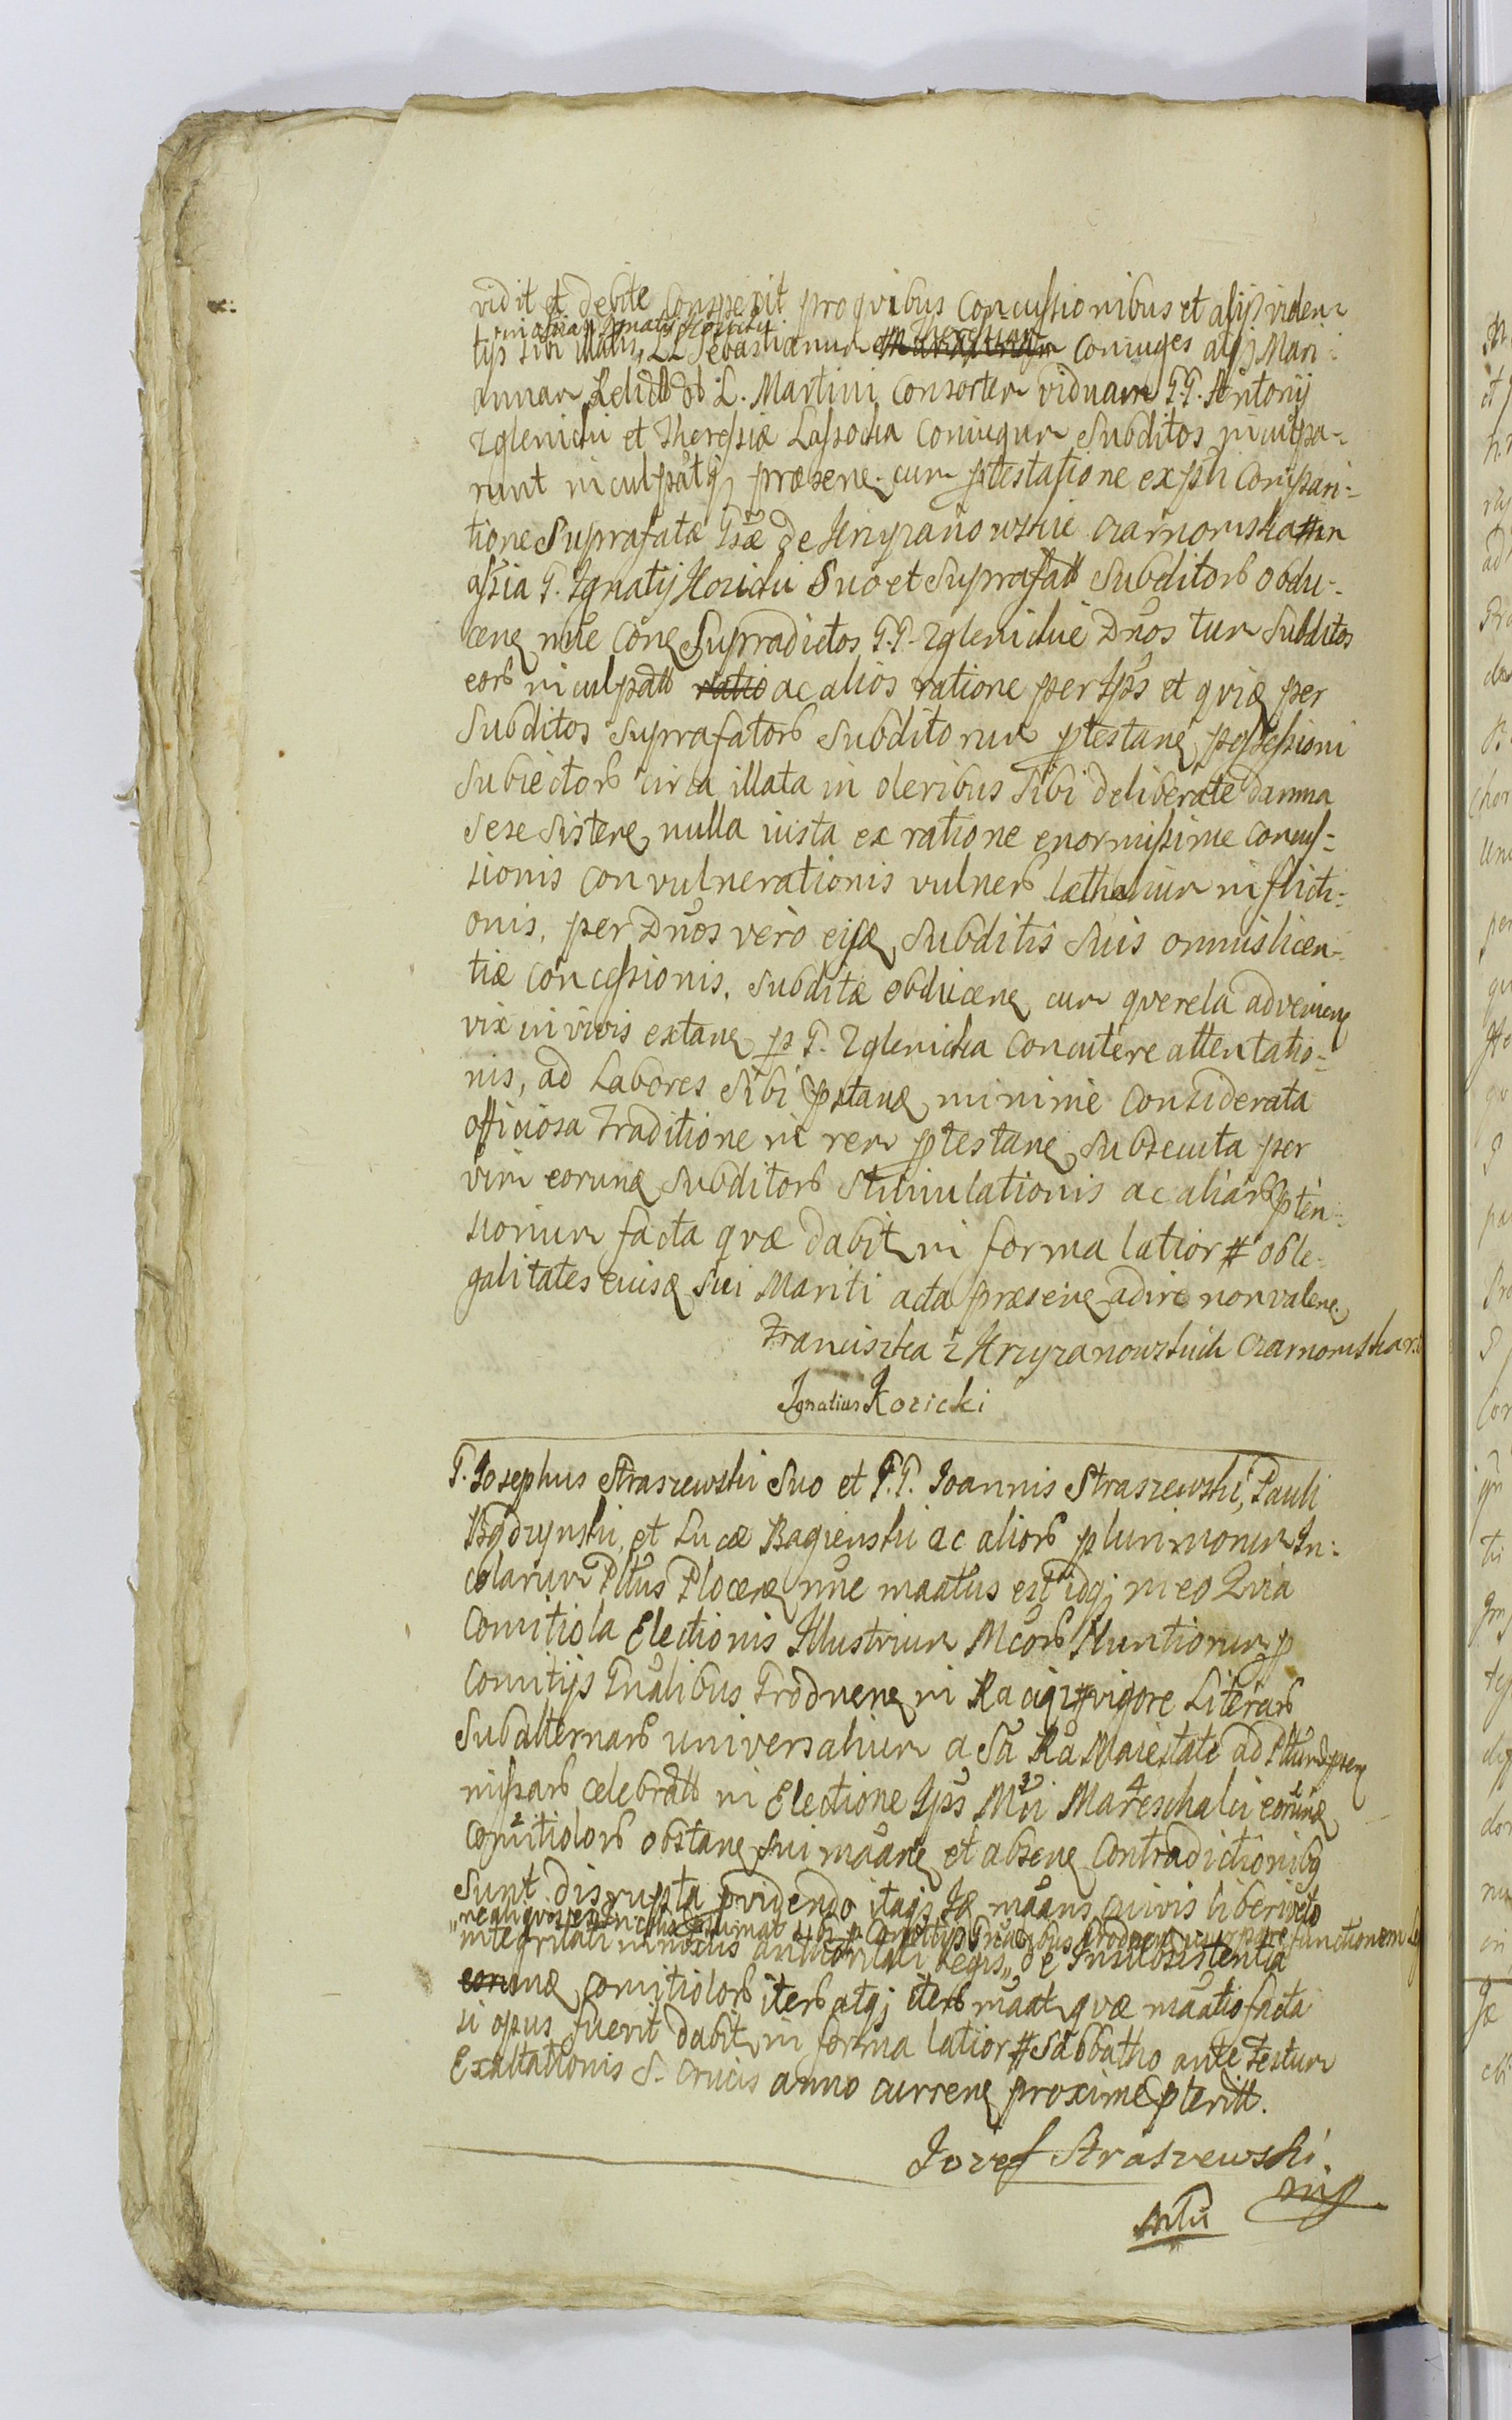 vidit et debite Conspexit pro quibus Concussionibus et alijs violen
in assia Ignatij Kozicki Theressiam
tijs sibi illatis, LL Sebastianum et Coniuges atq; Mari-
annam Relictã ol. L. Martini Consortem viduam G.G. Antonij
Zglenicki et Theressiæ Lassocka Coniugum Subditos inculpa-
runt inculpãtq; præsene. cum ptestatione ex psti Compari-
tione Suprafatæ Gsæ de Krzyzanowskie Czarnomska
assia G. Ignatij Kozicki Suo et Suprafatt Subditorb obdu-
cene nõie Cone Supradictos G.G. Zglenickie Dnos tum Subditos
eorb inculpatt ratio ac alios ratione per Ipõs et quiæ per
Subditos Suprafatorb Subditorum ptestane possessioni
Subiectorb circa illata in oleribus Sibi deliberate damna
Sese Sistene nulla iusta ex ratione enormissime Concus-
sionis Convulnerationis vulnerb læthalium inflicti-
onis, per Dnos vero eisd Subditis Suis omnis licen-
tiæ Concessionis. Subditæ obducene cum querela advenien
vix in vivis extane p G. Zglenicka Concutere attentatio-
nis, ad Labores Sibi pstand minime Considerata
officiosa traditione in rem ptestane Subsecuta per
vim eorund Subditorb Stimulationis ac aliarb pten-
sionum facta quæ dabit in forma latiori # ob le-
galitates eiusd Sui Mariti acta præsene adire non valene.
Franciszka z Krzyzanowskich Czarnomska
Ignatius Kozicki
G. Iosephus Straszewski Suo et G.G. Ioannis Straszewski, Pauli
Bądzynski, et Lucæ Bagienski ac aliorb plurimorum In-
colarum Pltus Plocene nõie maatus est idq; in eo Quia
Comitiola Electionis Illustrium Mcorb Nuntiorum p
Comitijs Gnalibus Grodnene in Raciąż # vigore Literarb
Subalternarb universalium a Sa Ra Maiestate ad Pltum
missarb celebratt in Electione Ipõs Mci Mareschalci eorund
Comitiolorb obstane Sui maane et absene Contradictionibq
Sunt disrupta pvidendo itaq; Id maans cuivis liberi veto
integritati authoritati Legis, de Insubsistentia
eorund Comitiolorb iterb atq; iterb maat quæ maatio facta
si opus fuerit dabit in forma latiori # Sabbatho ante Festum
Exaltationis S. Crucis anno currene proxime pteritt.
Jozef Straszewski
mp